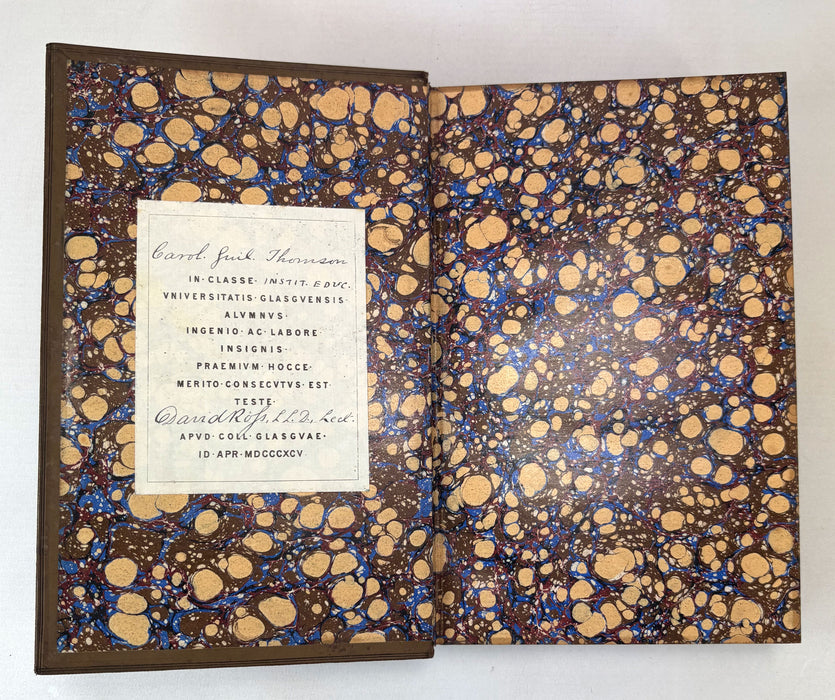 Carol. Guil. Thomson
IN · CLASSE · INSTIT. EDVC.
VNIVERSITATIS · GLASGVENSIS ·
ALVMNVS ·
INGENIO · AC · LABORE
INSIGNIS ·
PRAEMIVM · HOCCE ·
MERITO · CONSECVTVS · EST
TESTE ·
David Ross, LL.D., Lect.
APVD · COLL · GLASGVAE ·
ID · APR · MDCCCXCV ·